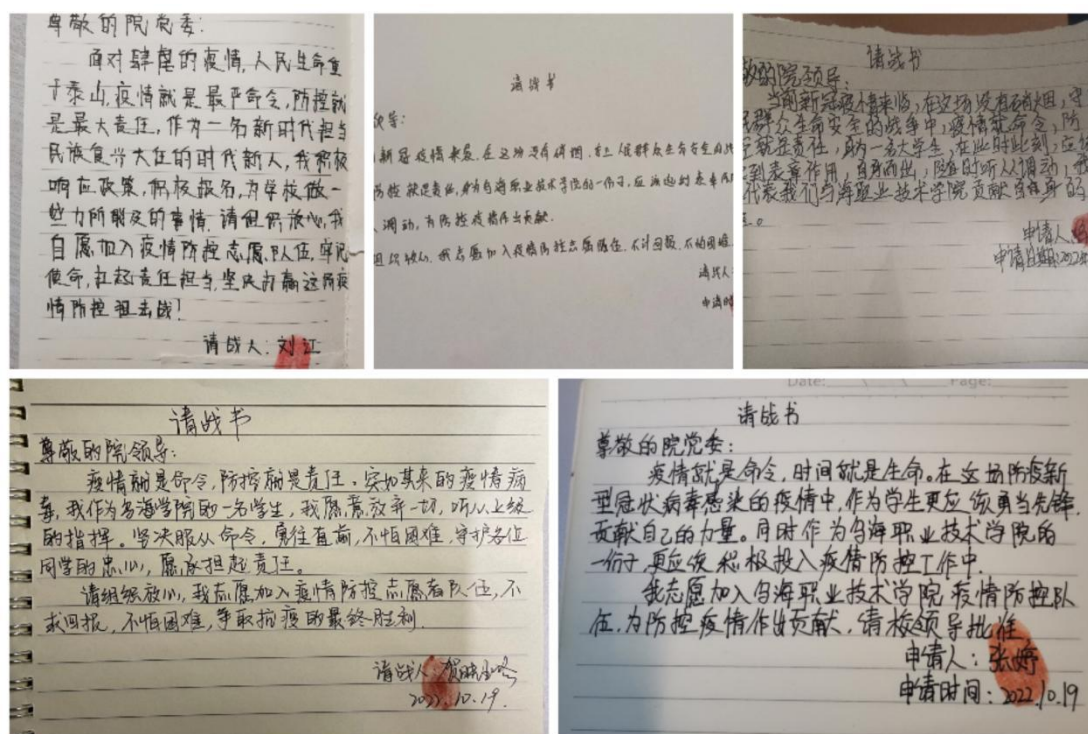 尊敬的院党委：
面对肆虐的疫情，人民生命重
于泰山，疫情就是最严命令，防控就
是最大责任，作为一名新时代担当
民族复兴大任的时代新人，我积极
响应政策，积极报名，为学校做一
些力所能及的事情。请组织放心，我
自愿加入疫情防控志愿队伍，牢记
使命，扛起责任担当，坚决打赢这场疫
情防控阻击战！
请战人：刘江
请战书
新冠疫情来袭，在这场没有硝烟，
防控就是责任，身为乌海职业技术学院的一份子，应该起到表率
调动，为防控疫情作出贡献。
组织放心，我志愿加入疫情防控志愿队伍，不计回报，不怕困难
请战人
申请时
请战书
敬的院领导：
当前新冠疫情来临，在这场没有硝烟，守
群众生命安全的战争中，疫情就命令，防
控就是责任，身为一名大学生，在此时此刻，应
到表率作用，自身而出，随时听从调动，
代表我们乌海职业技术学院贡献自身的
申请人
申请日期：2022
请战书
尊敬的院领导：
疫情就是命令，防控就是责任。突如其来的疫情病
毒，我作为乌海学院的一名学生，我愿意放弃一切，听从上级
的指挥。坚决服从命令，勇往直前，不怕困难，守护各位
同学的忠心，愿承担起责任。
请组织放心，我志愿加入疫情防控志愿者队伍，不
求回报，不怕困难，争取抗疫的最终胜利.
请战人：贺
2022.10.19.
Date: Page:
请战书
尊敬的院党委：
疫情就是命令，时间就是生命。在这场防疫新
型冠状病毒感染的疫情中，作为学生更应该勇当先锋，
贡献自己的力量。同时作为乌海职业技术学院的
一份子，更应该积极投入疫情防控工作中.
我志愿加入乌海职业技术学院疫情防控队
伍，为防控疫情作出贡献，请校领导批准
申请人：张婷
申请时间：2022.10.19